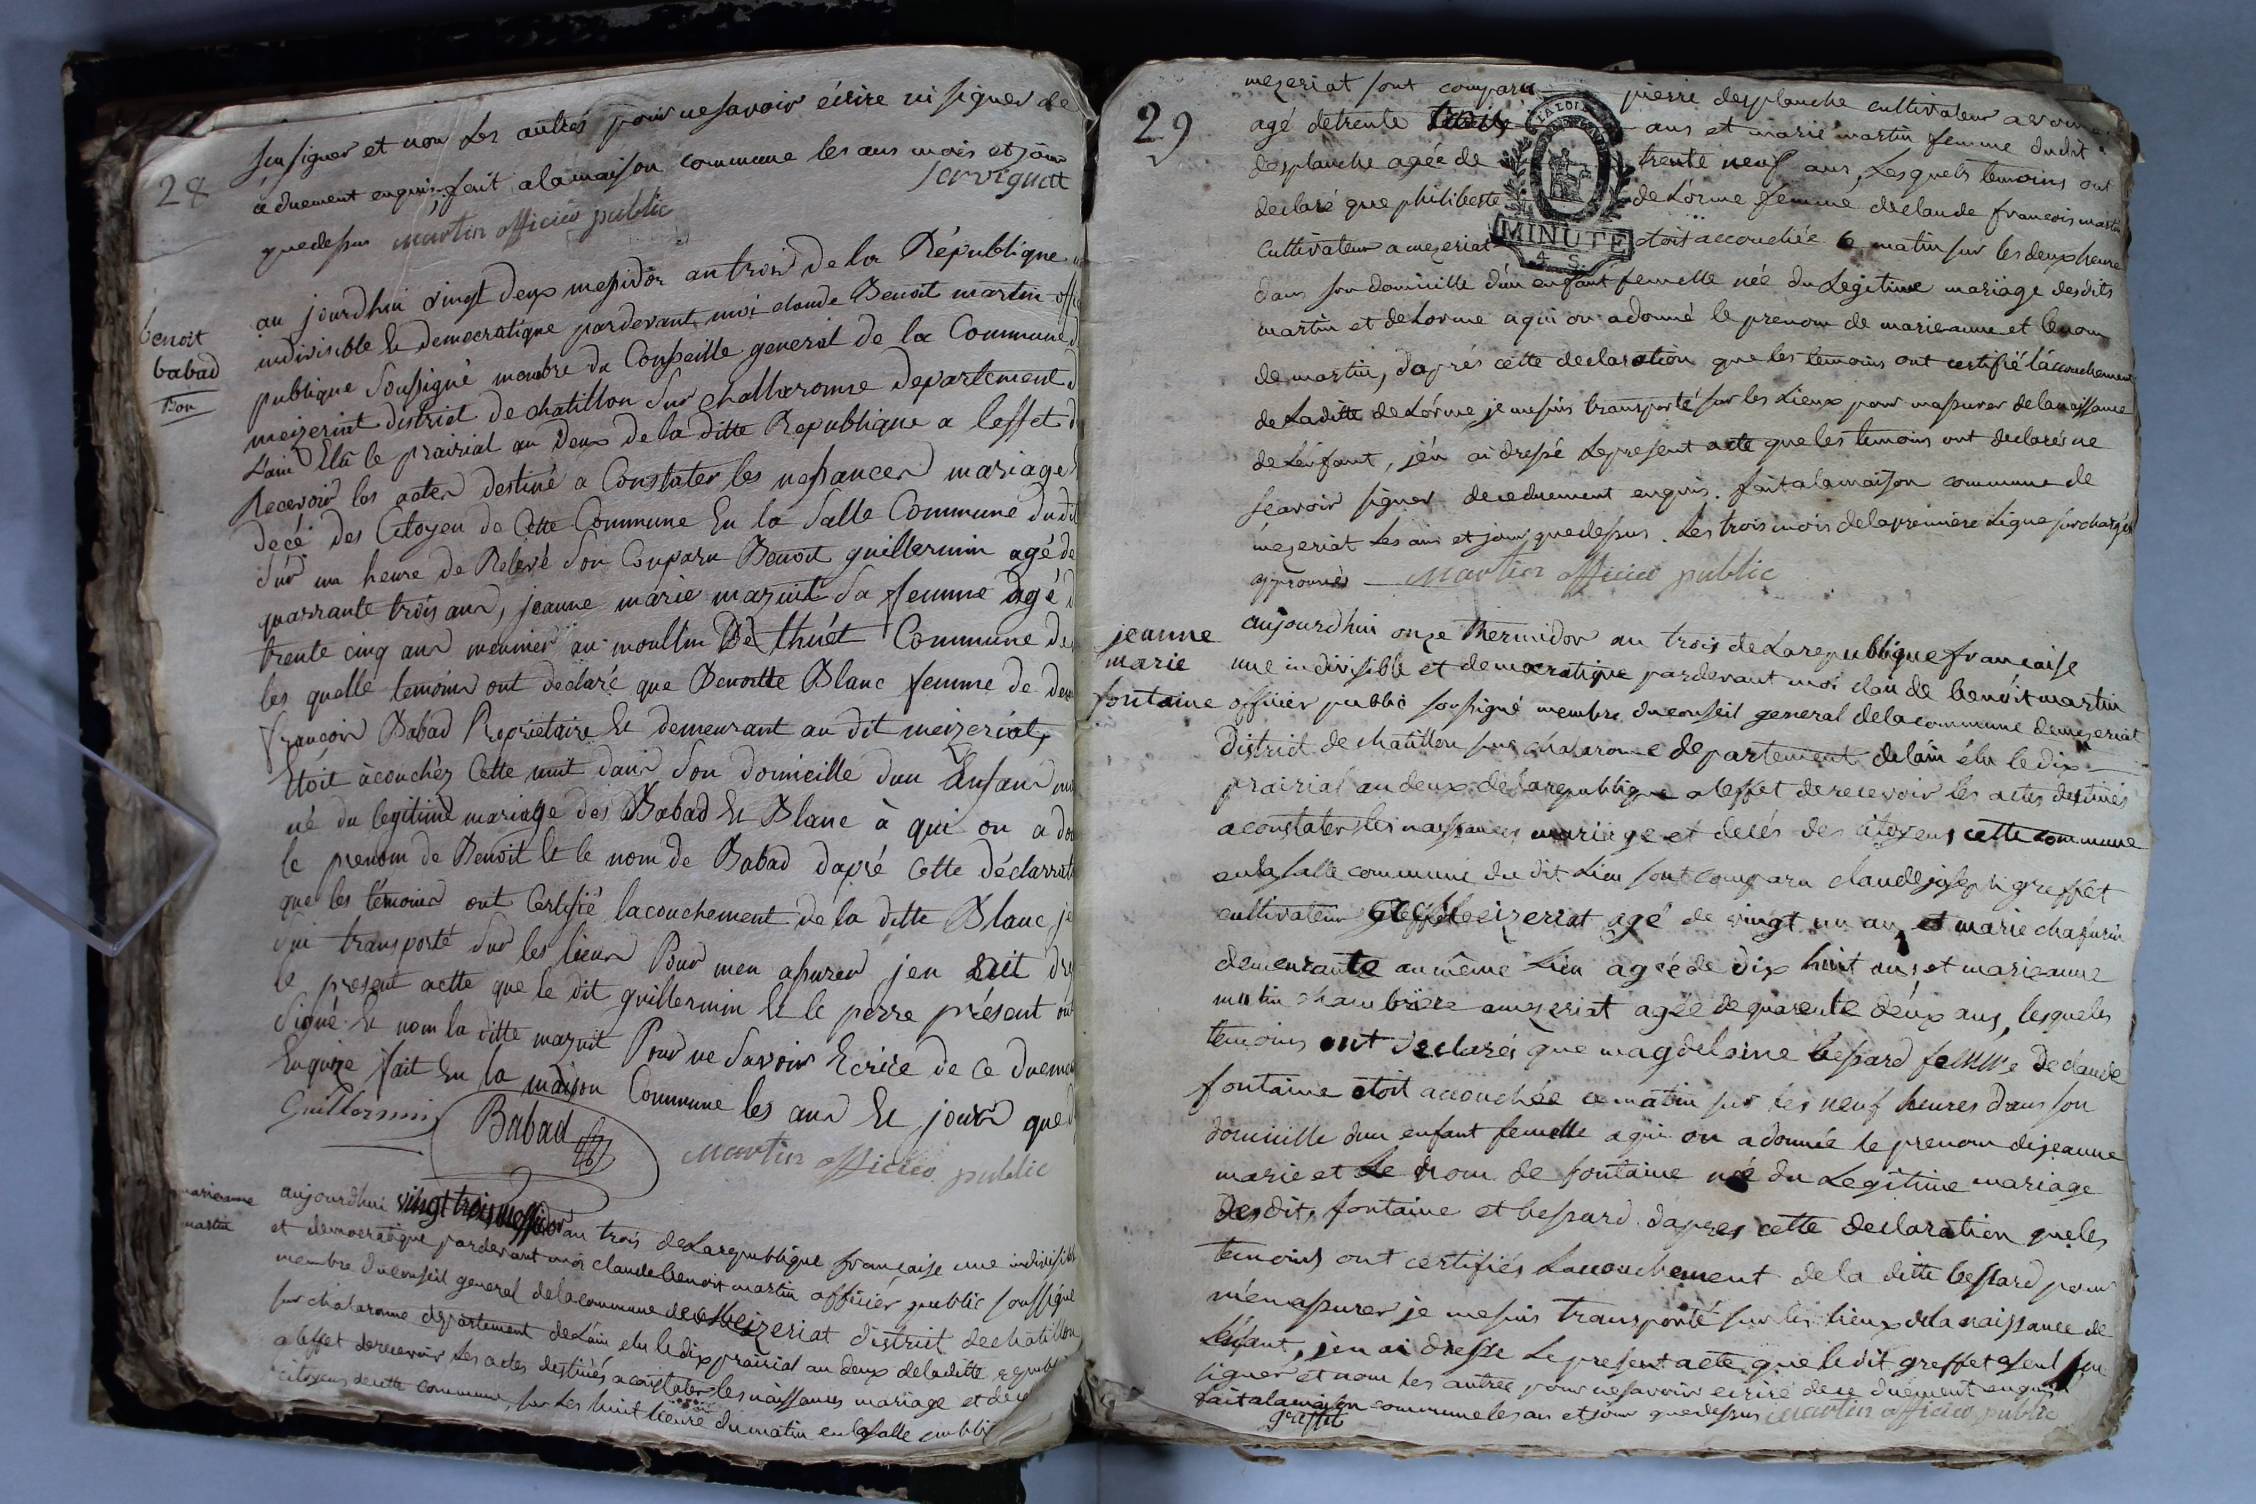 28
su signer et non les autres pour ne savoir écrire ni signer de
ce duement enquis, fait a la maison commune les ans mois et jour
que dessus Martin officier public
Servignat
benoit
babad
Bon
au jourdhui vingt deux mesidor an trois de la République
indivisible Et democratique pardevant moi claude Benoit martin offi
publique Sousigné membre du Conseille general de la Commune d
meizeriat district de chatillon sur challaronne departement d
L'ain Elû le prairial an Deux de la ditte Republique a leffet d
Recevoir les actes destiné a Constater les nessances mariage
décé des Citoyen de Cette Commune En la Salle Commune du dit
Sur un heure de Relevé Son Conparu Benoit guillermin agé de
quarrante trois ans, jeanne marie mazuit Sa femme agé d
trente cinq ans meunier au moullin De thuét Commune de
les quelle temoins ont declaré que Benoitte Blanc femme de
françois Babad Propriétaire Et demeurant au dit meizeriat,
Etoit àcouchéz Cette nuit dans Son domicille dun Enfans
né du legitime mariage des Babad Et Blanc à qui on a do
le prenom de Benoit Et le nom de Babad dapré Cette déclarrati
que les témoins ont Certifié lacouchement de la ditte Blanc je
sui transporté Sur les lieux Pour men assurer jen ait dre
le present actte que le dit guillermin Et le perre présent ont
Signé Et nom la ditte mazuit Pour ne Savoir Ecrire de ce duemen
Enquize fait En la maison Commune les ans Et jours que d
Guillermin
Babad
Martin officier public
marieanne
martin
aujourdhui vingt trois messidor an trois de la republique française une indivisible
et democratique pardevant moi claude benoit martin officier public soussigné
membre du conseil general de la commune de Meizeriat district de chatillon
sur chalaronne departement de L'ain elu le dix prairial an deux de la ditte republ
a leffet de recevoir les actes destinés a constater les naissances mariage et déce
citoyens de cette commune, sur les huit heure du matin en la salle publi
29
mezeriat sont comparu pierre desplanche cultivateur a vonn
agé de trente trois ans et marie martin femme dudit
desplanche agée de trente neuf ans, Lesquels temoins ont
declaré que philiberte de Lorme femme de claude francois martin
Cultivateur a mezeriat etoit accouchée ce matin sur les deux heure
dans son domicille d'un enfant femelle née du Legitime mariage desdits
martin et de Lorme a qui on a donné le prenom de marieanne et le nom
de martin, d'après cette declaration que les temoins ont certifié l'accouchement
de La ditte de Lorme je me suis transporté sur les Lieux pour massurer de la naissance
de L'enfant, j'en ai dressé Le present acte que les temoins ont declarés ne
sçavoir signer de ce duement enquis. fait a la maison commune de
mezeriat Les ans et jour que dessus. Les trois mois de la premiere Ligne surchargés
approuvés Martin officier public
MINUTE
4 S.
jeanne
marie
fontaine
aujourdhui onze thermidor an trois de La republique francaise
une indivisible et democratique pardevant moi claude benoit martin
officier public soussigné membre du conseil general de la commune de mezeriat
District de chatillon sur chalaronne departement de lain élu le dix
prairial an deux de la republique a leffet de recevoir les actes destinés
a constater les naissances, mariage et decés des citoyens cette commune
en la salle commune du dit Lieu sont comparu claude joseph greffet
cultivateur a meizeriat agé de vingt un an, et marie chafurin
demeurante au même Lieu agée de dix huit ans, et marieanne
mutin chambriere a mezeriat agée de quarente deux ans, lesquels
temoins ont declarés que magdelaine bessard femme De claude
fontaine etoit accouchée ce matin sur les neuf heures dans son
domicille dun enfant femelle a qui on a donnée le prenom de jeanne
marie et Le nom de fontaine née du Legitime mariage
Desdits fontaine et bessard. dapres cette declaration que les
temoins ont certifiés L'accouchement de la ditte bessard pour
m'en assurer je me suis transporté sur les lieux de la naissance de
L'enfant, j'en ai dressé Le present acte que le dit greffet a seul su
signer et nom les autres pour ne savoir ecrire de ce duement enquis
fait a la maison commune les an et jour que dessus Martin officier public
greffet